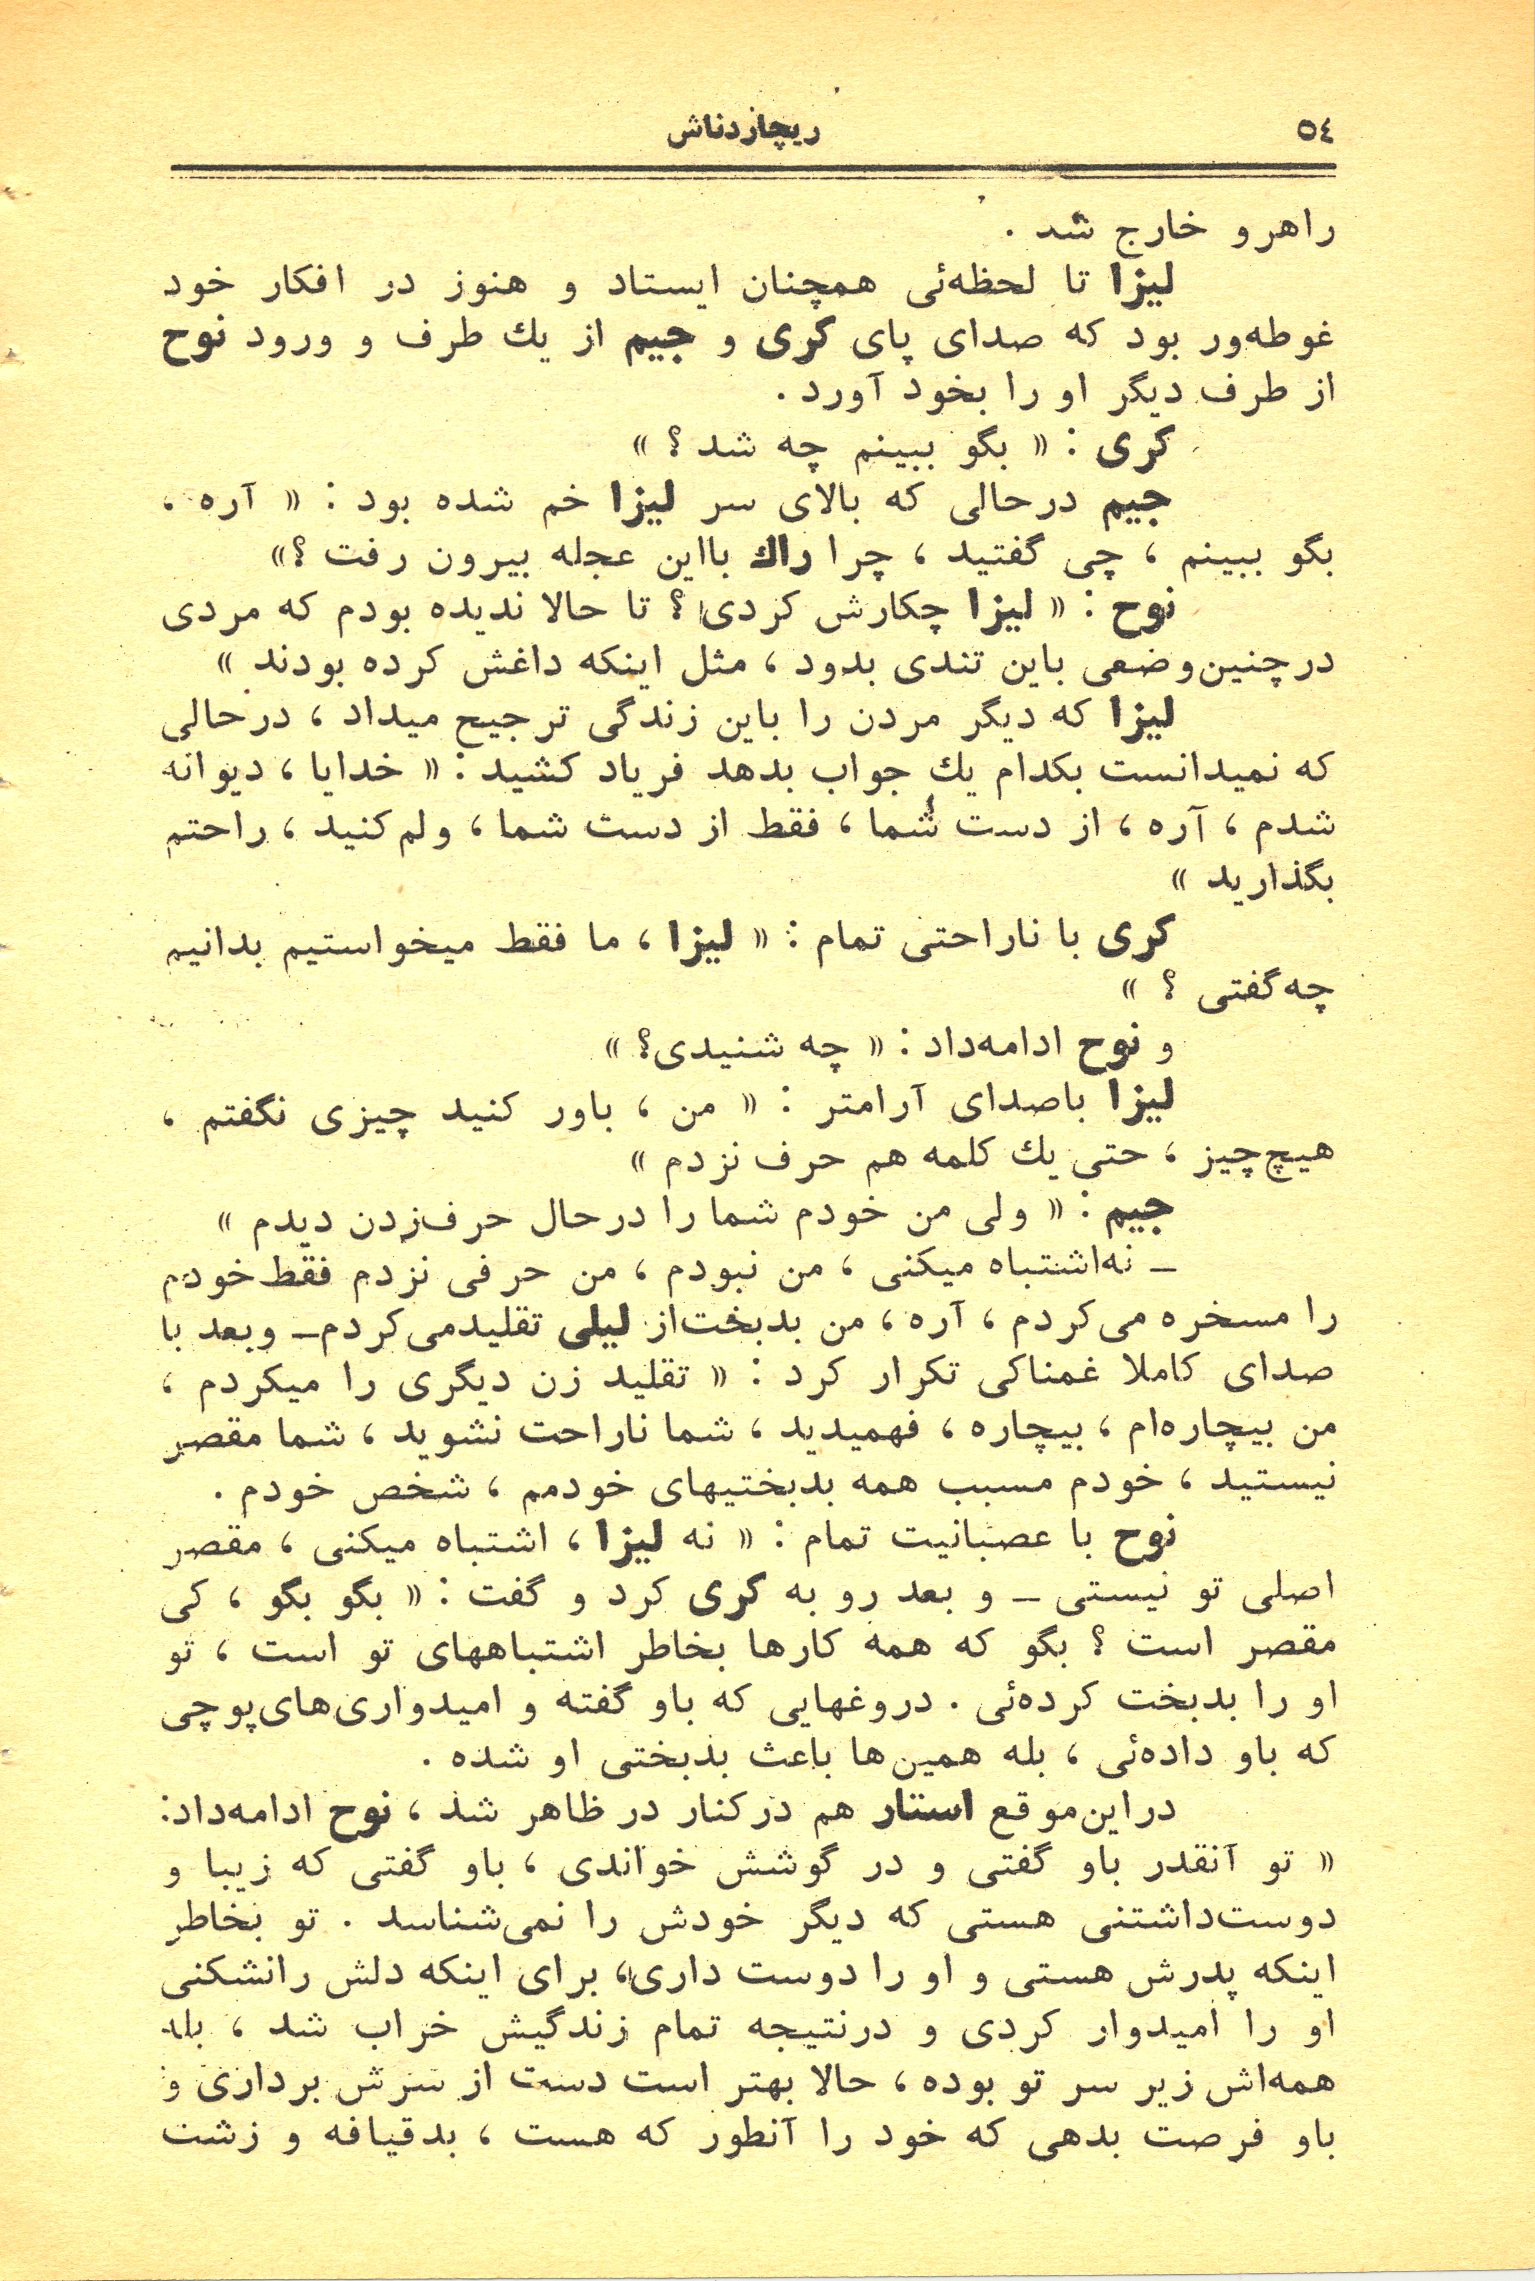 ٥٤
ریچاردناش
راهرو خارج شد .
لیزا تا لحظه‌ئی همچنان ایستاد و هنوز در افکار خود
غوطه‌ور بود که صدای پای کری و جیم از یك طرف و ورود نوح
از طرف دیگر او را بخود آورد .
کری : « بگو ببینم چه شد ؟ »
جیم درحالی که بالای سر لیزا خم شده بود : « آره ،
بگو ببینم ، چی گفتید ، چرا راك بااین عجله بیرون رفت ؟»
نوح : « لیزا چکارش کردی ؟ تا حالا ندیده بودم که مردی
درچنین‌وضعی باین تندی بدود ، مثل اینکه داغش کرده بودند »
لیزا که دیگر مردن را باین زندگی ترجیح میداد ، درحالی
که نمیدانست بکدام یك جواب بدهد فریاد کشید : « خدایا ، دیوانه
شدم ، آره ، از دست شما ، فقط از دست شما ، ولم‌کنید ، راحتم
بگذارید »
کری با ناراحتی تمام : « لیزا ، ما فقط میخواستیم بدانیم
چه‌گفتی ؟ »
و نوح ادامه‌داد : « چه شنیدی؟ »
لیزا باصدای آرامتر : « من ، باور کنید چیزی نگفتم ،
هیچ‌چیز ، حتی یك کلمه هم حرف نزدم »
جیم : « ولی من خودم شما را درحال حرف‌زدن دیدم »
ـ نه‌اشتباه میکنی ، من نبودم ، من حرفی نزدم فقط‌خودم
را مسخره می‌کردم ، آره ، من بدبخت‌از لیلی تقلیدمی‌کردم‌ـ وبعد با
صدای کاملا غمناکی تکرار کرد : « تقلید زن دیگری را میکردم ،
من بیچاره‌ام ، بیچاره ، فهمیدید ، شما ناراحت نشوید ، شما مقصر
نیستید ، خودم مسبب همه بدبختیهای خودمم ، شخص خودم .
نوح با عصبانیت تمام : « نه لیزا ، اشتباه میکنی ، مقصر
اصلی تو نیستی ـ و بعد رو به کری کرد و گفت : « بگو بگو ، کی
مقصر است ؟ بگو که همه کارها بخاطر اشتباههای تو است ، تو
او را بدبخت کرده‌ئی . دروغهایی که باو گفته و امیدواری‌های‌پوچی
که باو داده‌ئی ، بله همین‌ها باعث بدبختی او شده .
دراین‌موقع استار هم درکنار در ظاهر شد ، نوح ادامه‌داد:
« تو آنقدر باو گفتی و در گوشش خواندی ، باو گفتی که زیبا و
دوست‌داشتنی هستی که دیگر خودش را نمی‌شناسد . تو بخاطر
اینکه پدرش هستی و او را دوست داری، برای اینکه دلش رانشکنی
او را امیدوار کردی و درنتیجه تمام زندگیش خراب شد ، بله
همه‌اش زیر سر تو بوده ، حالا بهتر است دست از سرش برداری و
باو فرصت بدهی که خود را آنطور که هست ، بدقیافه و زشت